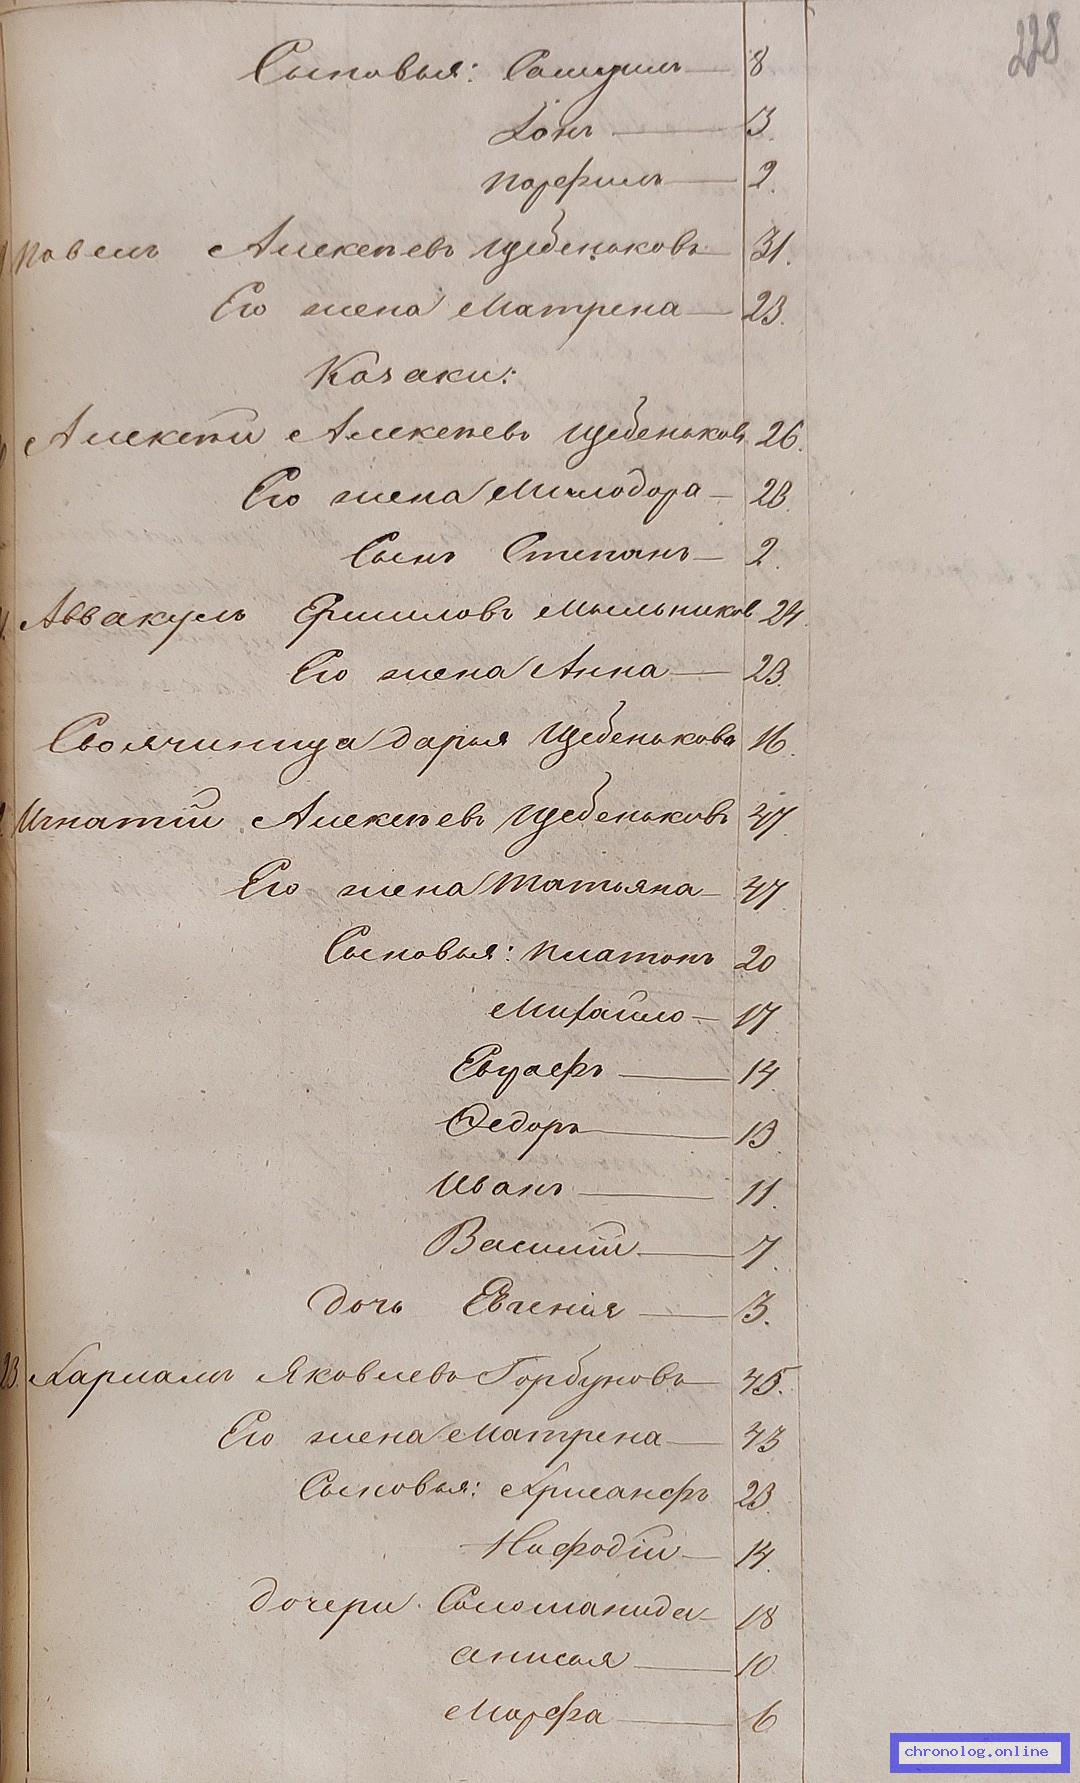 228
Сыновья: Самуилъ — 8
Іонъ — 3.
Порфилъ — 2.
Павелъ Алексѣевъ Щебеньковъ — 31.
Его жена Матрена — 23.
Казаки:
Алексѣй Алексѣевъ Щебеньковъ 26.
Его жена Милодора — 23.
Сынъ Степанъ — 2.
Аввакумъ Ермиловъ Мыльниковъ 24.
Его жена Анна — 23.
Своячиница Дарья Щебенькова 16.
Игнатій Алексѣевъ Щебеньковъ 47.
Его жена Татьяна — 47.
Сыновья: Платонъ 20
Михайло — 17
Евграфъ — 14
Федоръ — 13
Иванъ — 11.
Василій — 7.
Дочь Евгенія — 3.
23. Харламъ Яковлевъ Горбуновъ — 45.
Его жена Матрена — 43
Сыновья: Хрисанфъ 23.
Нафодій — 14.
Дочери Соломанида — 18
Анисья — 10
Марфа — 6
chronolog.online